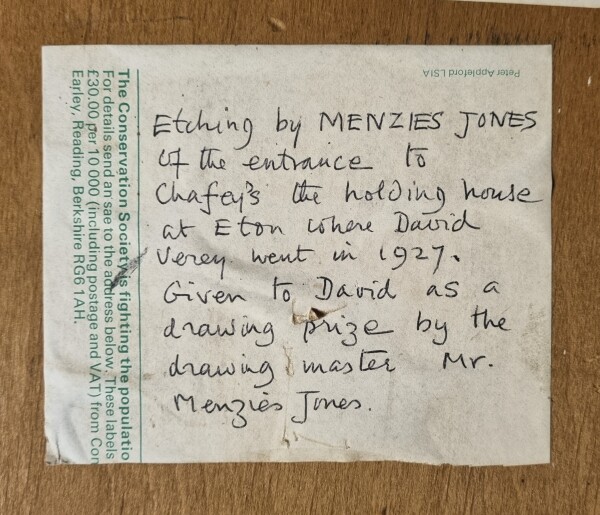 Peter Appleford LSIA
The Conservation Society is fighting the populatio
For details send an sae to the address below. These labels
£30.00 per 10 000 (including postage and VAT) from Con
Earley, Reading, Berkshire RG6 1AH.
Etching by MENZIES JONES
of the entrance to
Chafey's the holding house
at Eton where David
Verey went in 1927.
Given to David as a
drawing prize by the
drawing master Mr.
Menzies Jones.